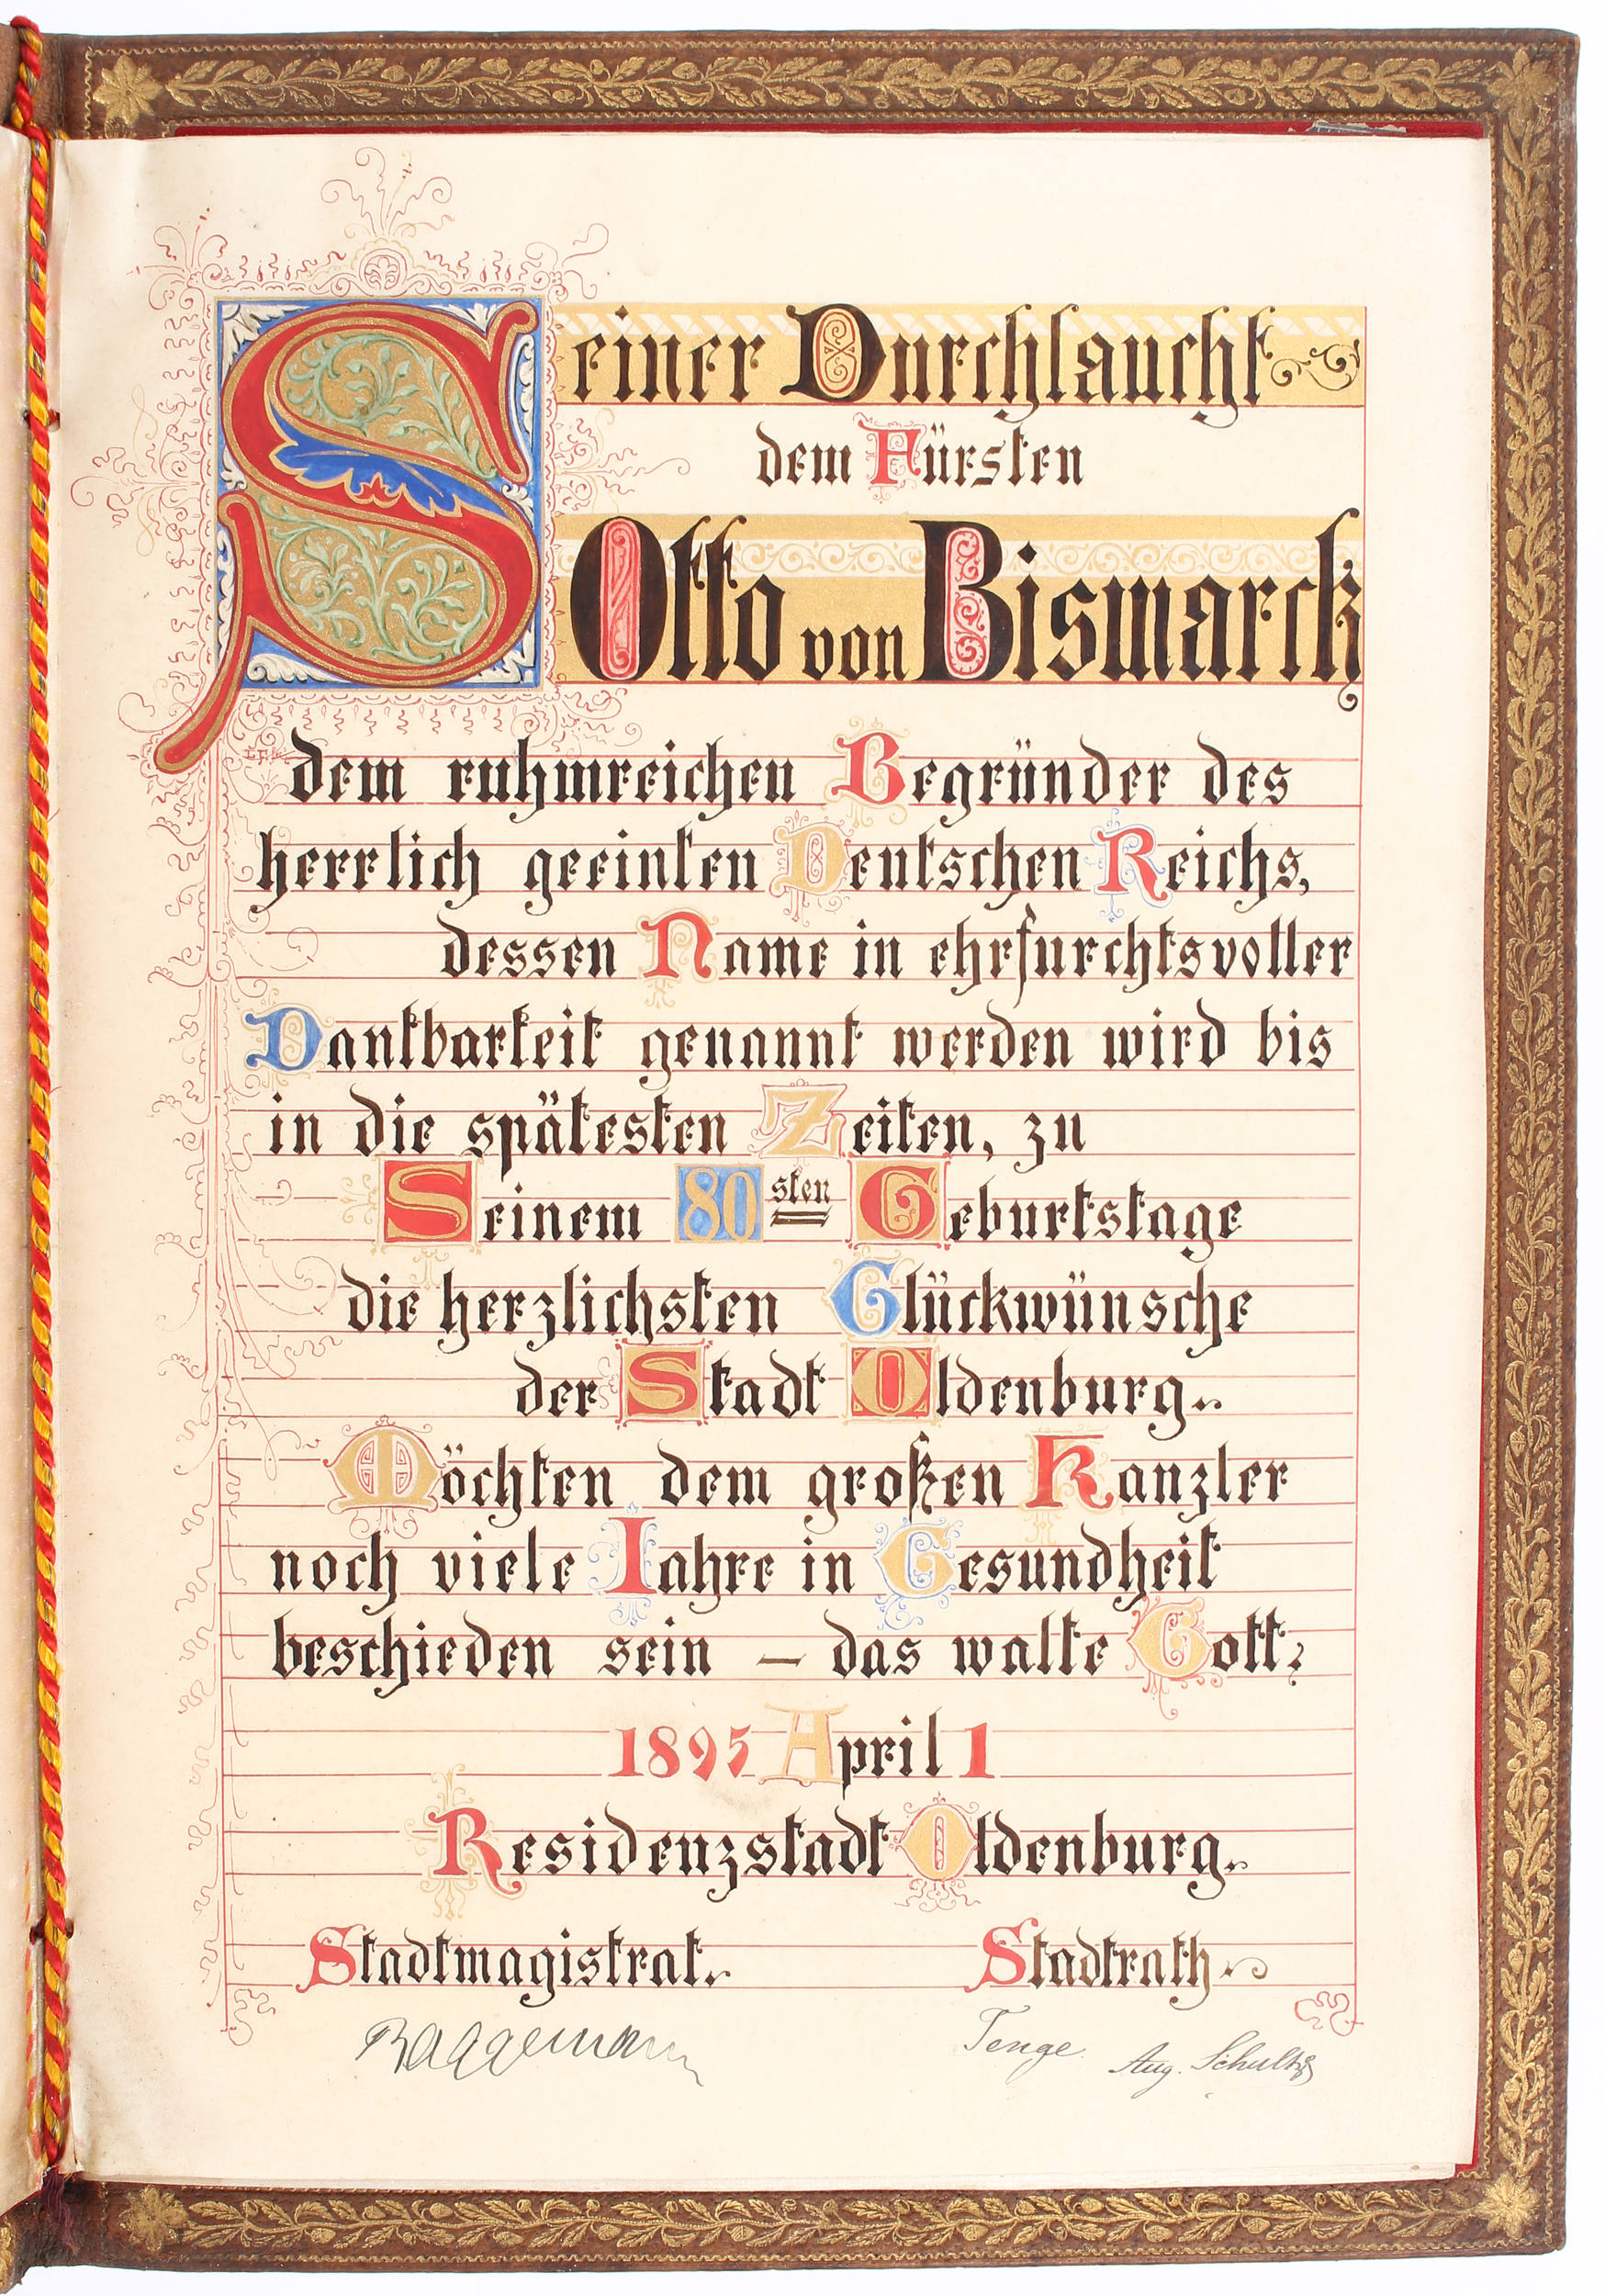 Seiner Durchlaucht
dem Fürsten
Otto von Bismarck
dem ruhmreichen Begründer des
herrlich geeinten Deutschen Reichs,
dessen Name in ehrfurchtsvoller
Dankbarkeit genannt werden wird bis
in die spätesten Zeiten, zu
Seinem 80sten Geburtstage
die herzlichsten Glückwünsche
der Stadt Oldenburg.
Möchten dem großen Kanzler
noch viele Jahre in Gesundheit
beschieden sein – das walte Gott;
1895 April 1
Residenzstadt Oldenburg.
Stadtmagistrat. Stadtrath.
Roggemann Tenge. Aug. Schultze